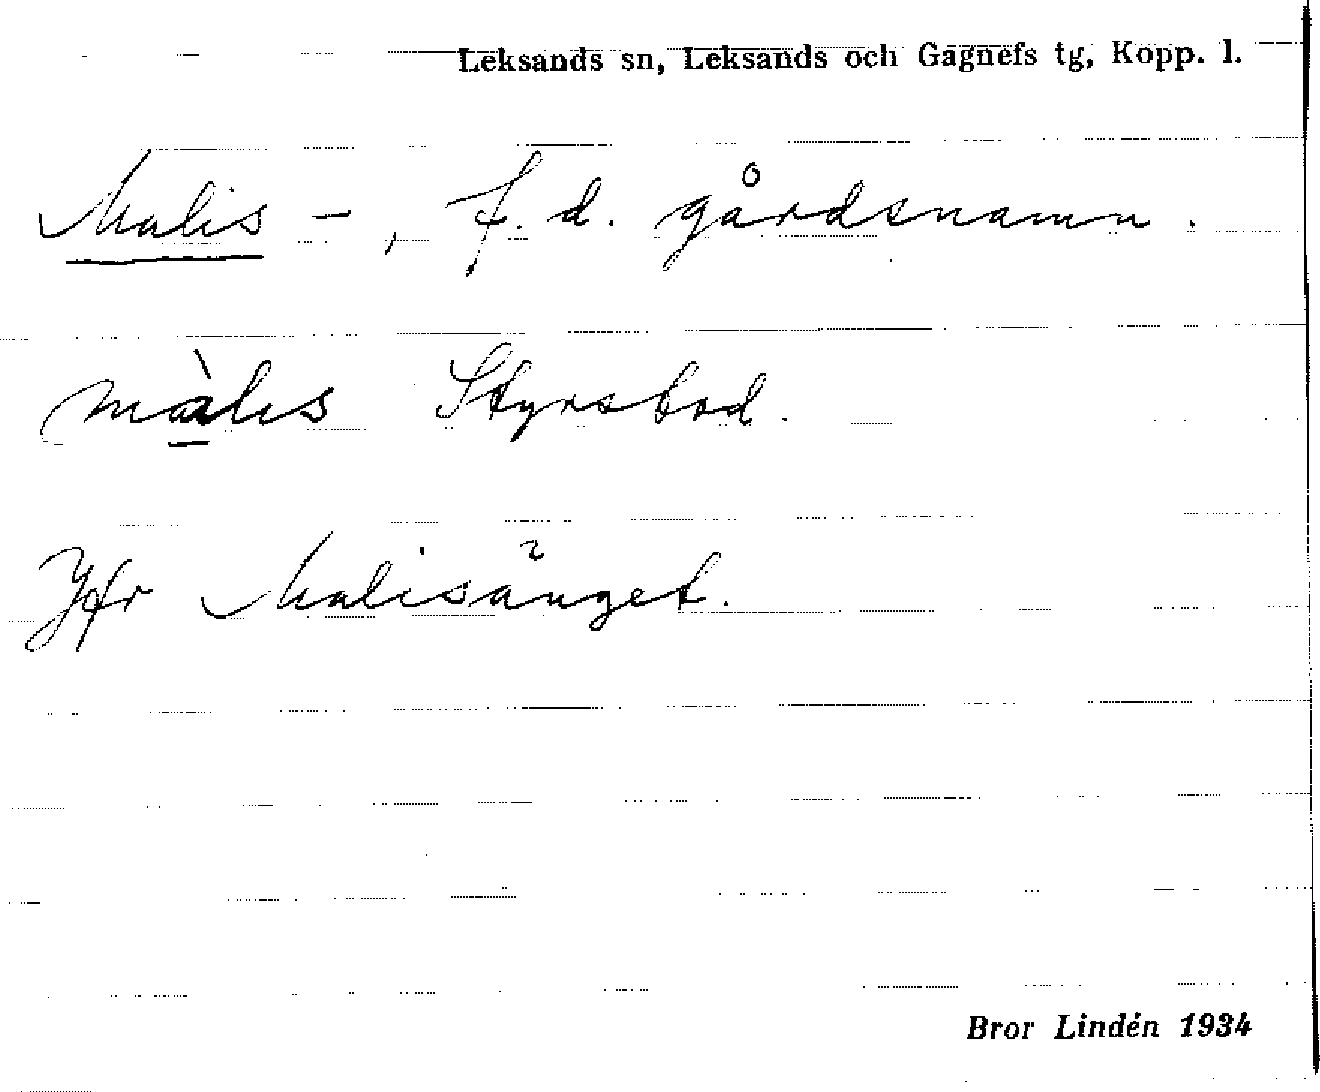 Leksands sn, Leksands och Gagnefs tg, Kopp. l.
Malis -, f. d. gårdsnamn.
màlis Styrsbod.
Jfr Malisänget.
Bror Lindén 1934